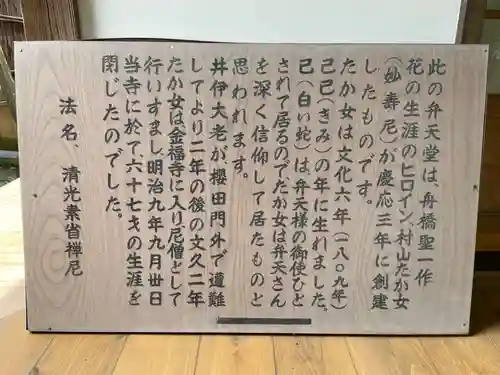 此の弁天堂は、舟橋聖一作
花の生涯のヒロイン、村山たか女
(妙寿尼)が慶応三年に創建
したものです。
たか女は文化六年(一八〇九年)
己巳(きみ)の年に生れました。
己(白い蛇)は、弁天様の御使ひと
されて居るのでたか女は弁天さん
を深く信仰して居たものと
思われます。
井伊大老が、櫻田門外で遭難
してより二年の後の文久二年
たか女は金福寺に入り尼僧として
行いすまし、明治九年九月丗日
当寺に於て、六十七才の生涯を
閉じたのでした。
法名、清光素省禅尼